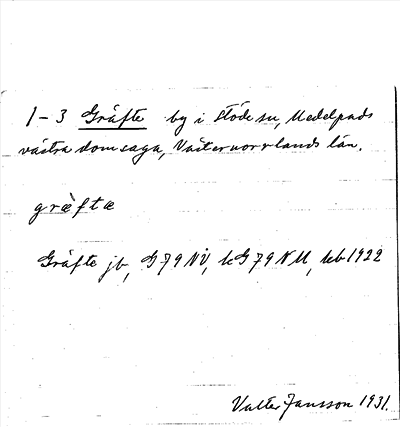 1-3 Gräfte by i Stöde sn, Medelpads
västra domsaga, Västernorrlands län.
græ̀ftæ
Gräfte jb, G79NV, kG79NU, kb 1922
Valter Jansson 1931.